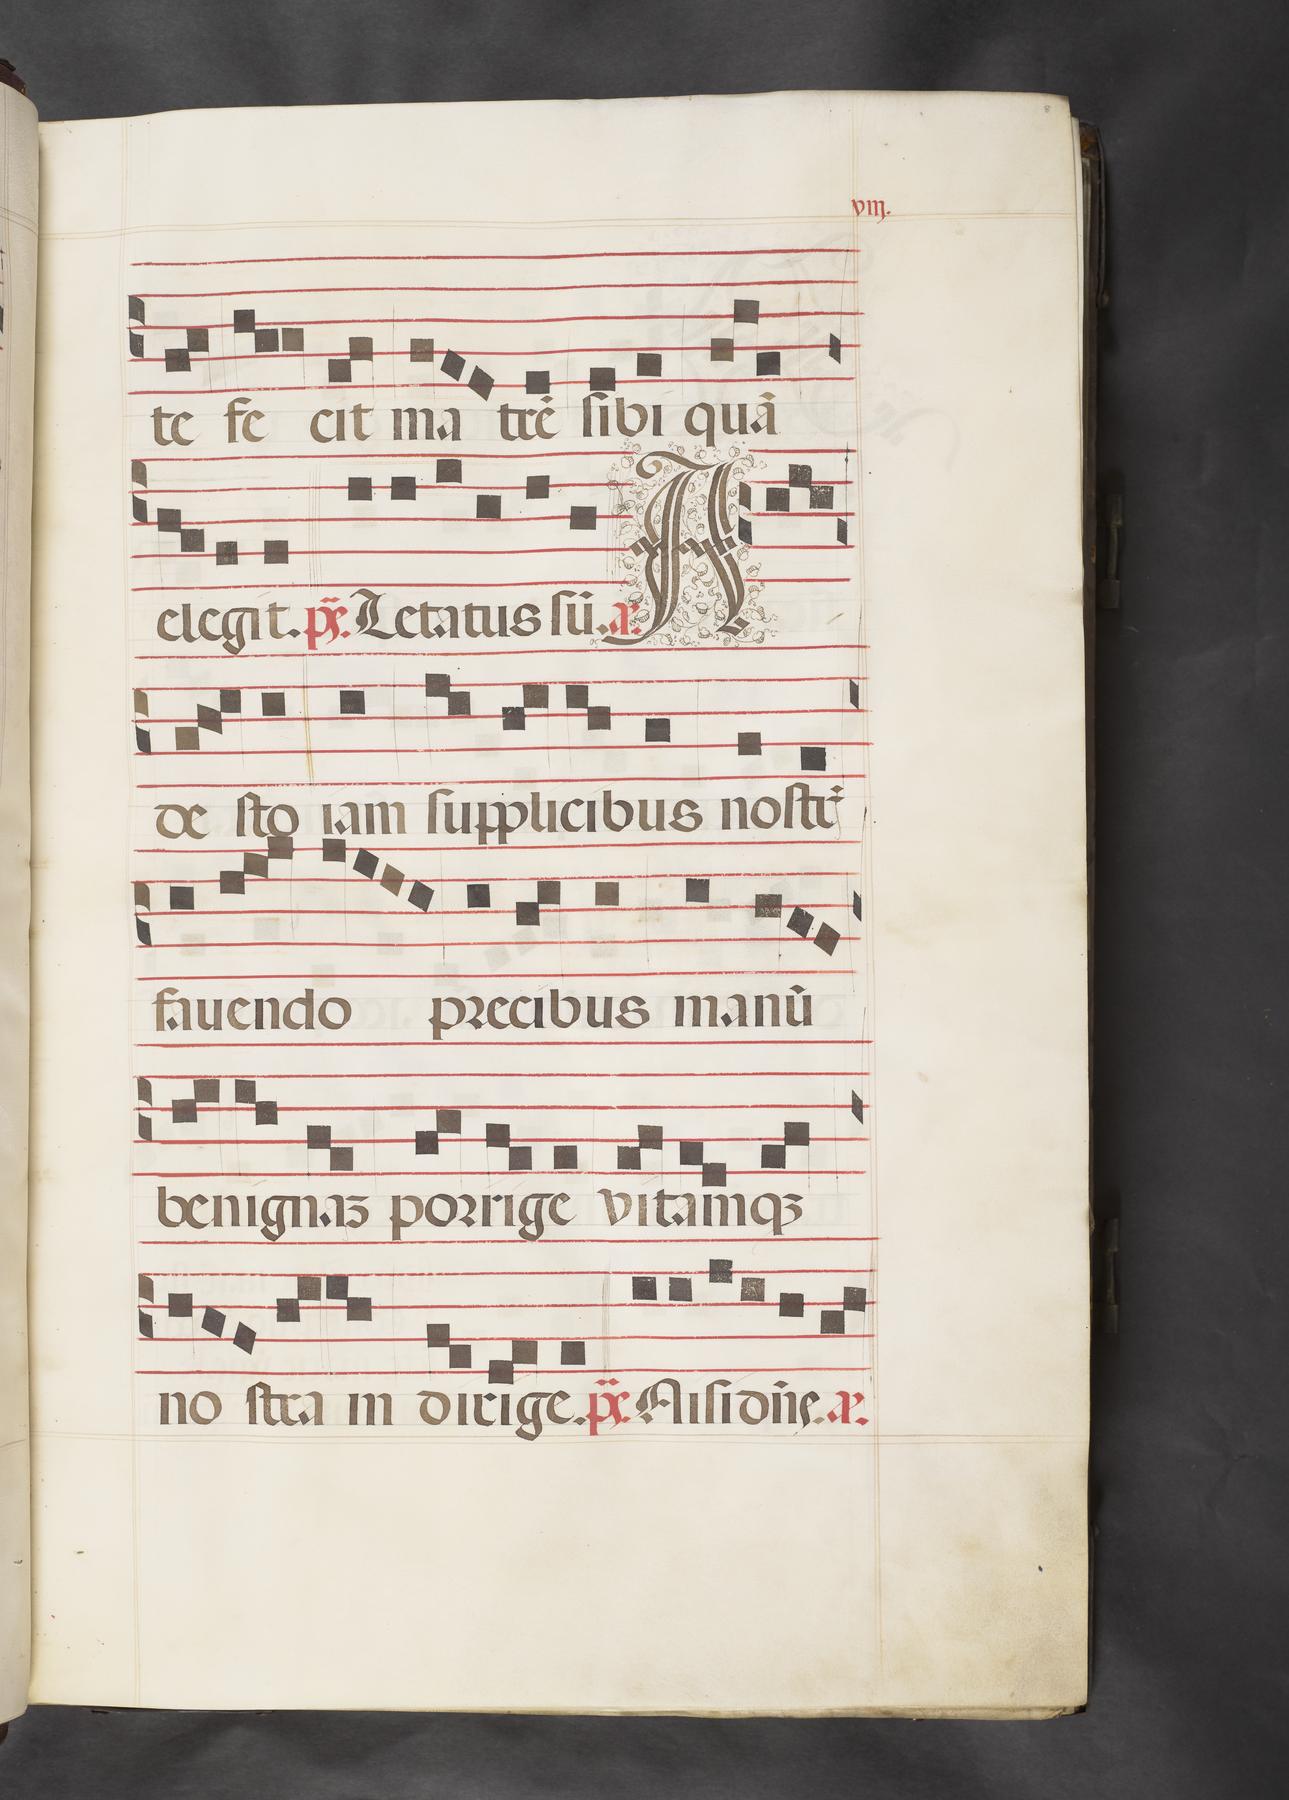 viij.
te fe cit ma trē sibi quā
elegit. ps. Letatus sū. a. A
de sto iam supplicibus nostr̄
fauendo precibus manū
benignaʒ porrige vitamqʒ
no stra in dirige. ps. Nisi dn̄s. a.